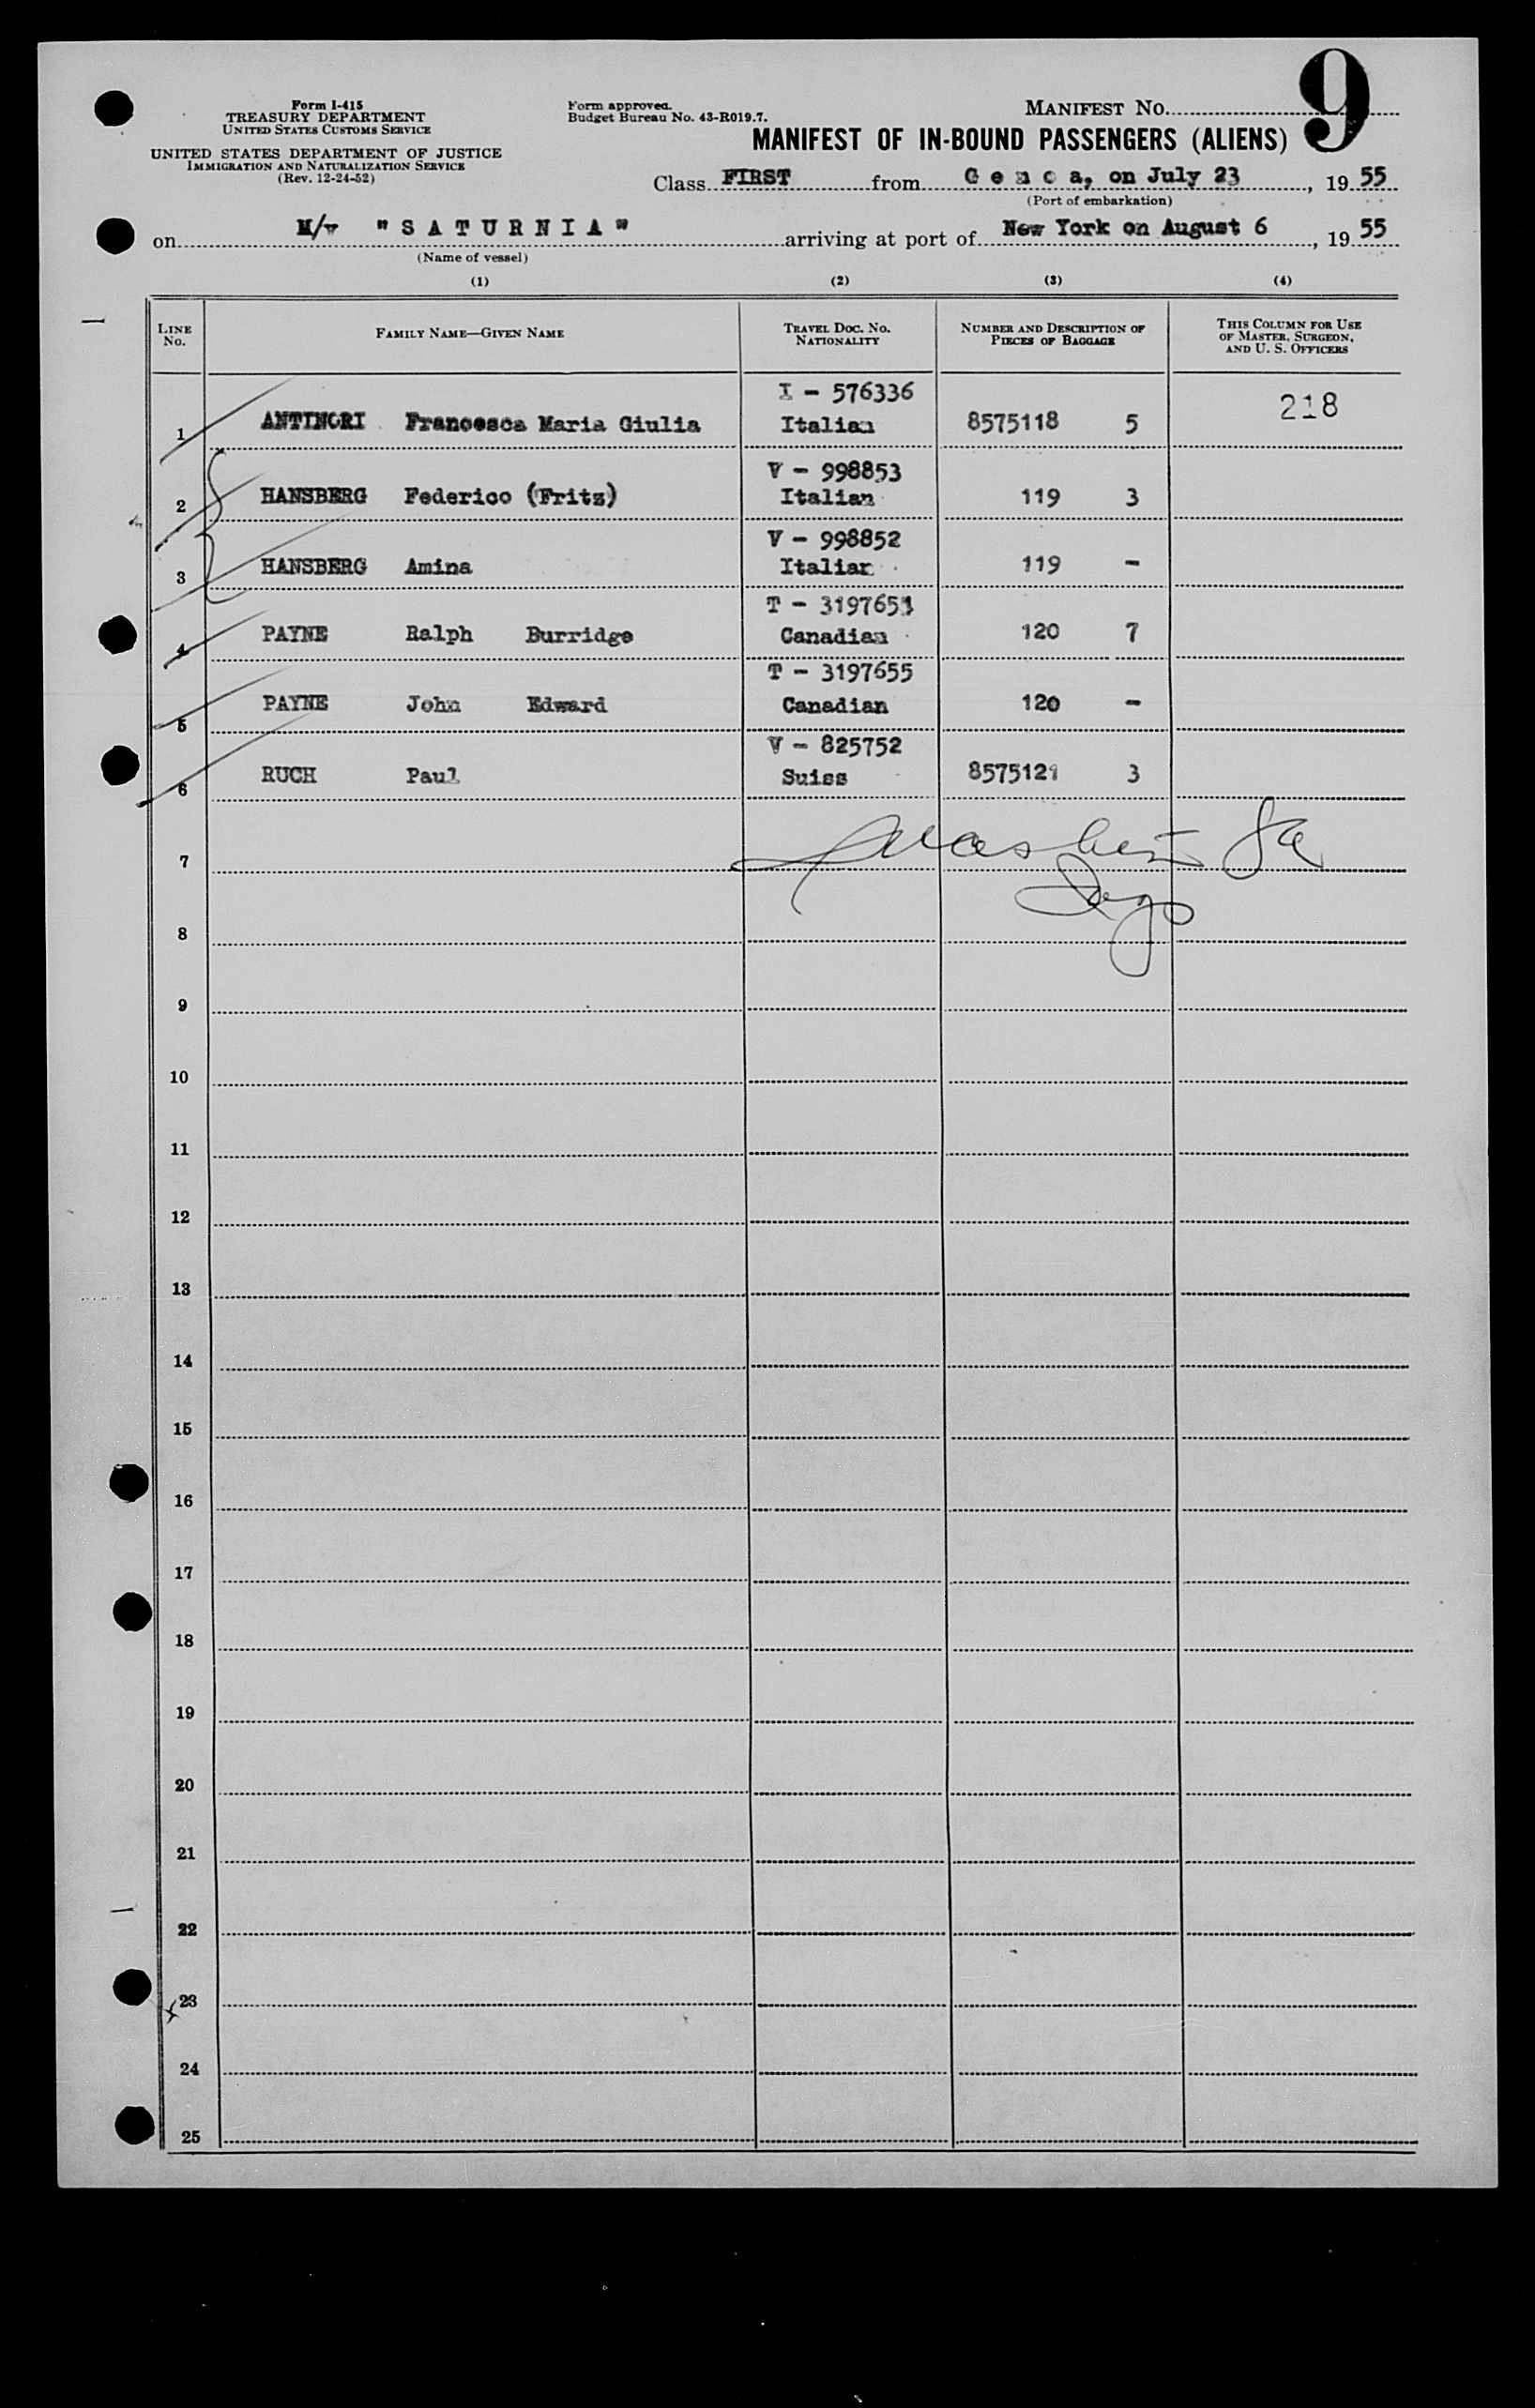 Form I-415
TREASURY DEPARTMENT
UNITED STATES CUSTOMS SERVICE
UNITED STATES DEPARTMENT OF JUSTICE
IMMIGRATION AND NATURALIZATION SERVICE
(Rev. 12-24-52)
Form approved.
Budget Bureau No. 43-R019.7.
MANIFEST NO. 9
MANIFEST OF IN-BOUND PASSENGERS (ALIENS)
Class FIRST from Genoa, on July 23, 19 55
(Port of embarkation)
on M/v "SATURNIA" arriving at port of New York on August 6, 19 55
(Name of vessel)
(1) (2) (3) (4)
LINE NO. FAMILY NAME—GIVEN NAME TRAVEL DOC. NO. NATIONALITY NUMBER AND DESCRIPTION OF PIECES OF BAGGAGE THIS COLUMN FOR USE OF MASTER, SURGEON, AND U. S. OFFICERS
I - 576336
1 ANTINORI Francesca Maria Giulia Italian 8575118 5 218
V - 998853
2 HANSBERG Federico (Fritz) Italian 119 3
V - 998852
3 HANSBERG Amina Italian 119 -
T - 3197651
4 PAYNE Ralph Burridge Canadian 120 7
T - 3197655
5 PAYNE John Edward Canadian 120 -
V - 825752
6 RUCH Paul Suiss 8575121 3
7
8
9
10
11
12
13
14
15
16
17
18
19
20
21
22
23
24
25